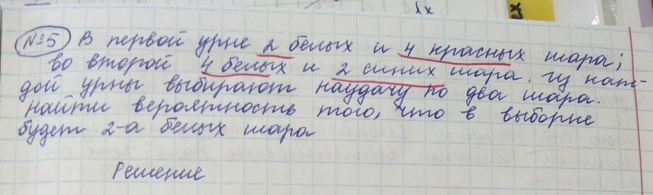 №5 В первой урне 2 белых и 4 красных шара;
во второй 4 белых и 2 синих шара. Из каж-
дой урны выбирают наудачу по два шара.
найти вероятность того, что в выборке
будет 2-а белых шара
Решение